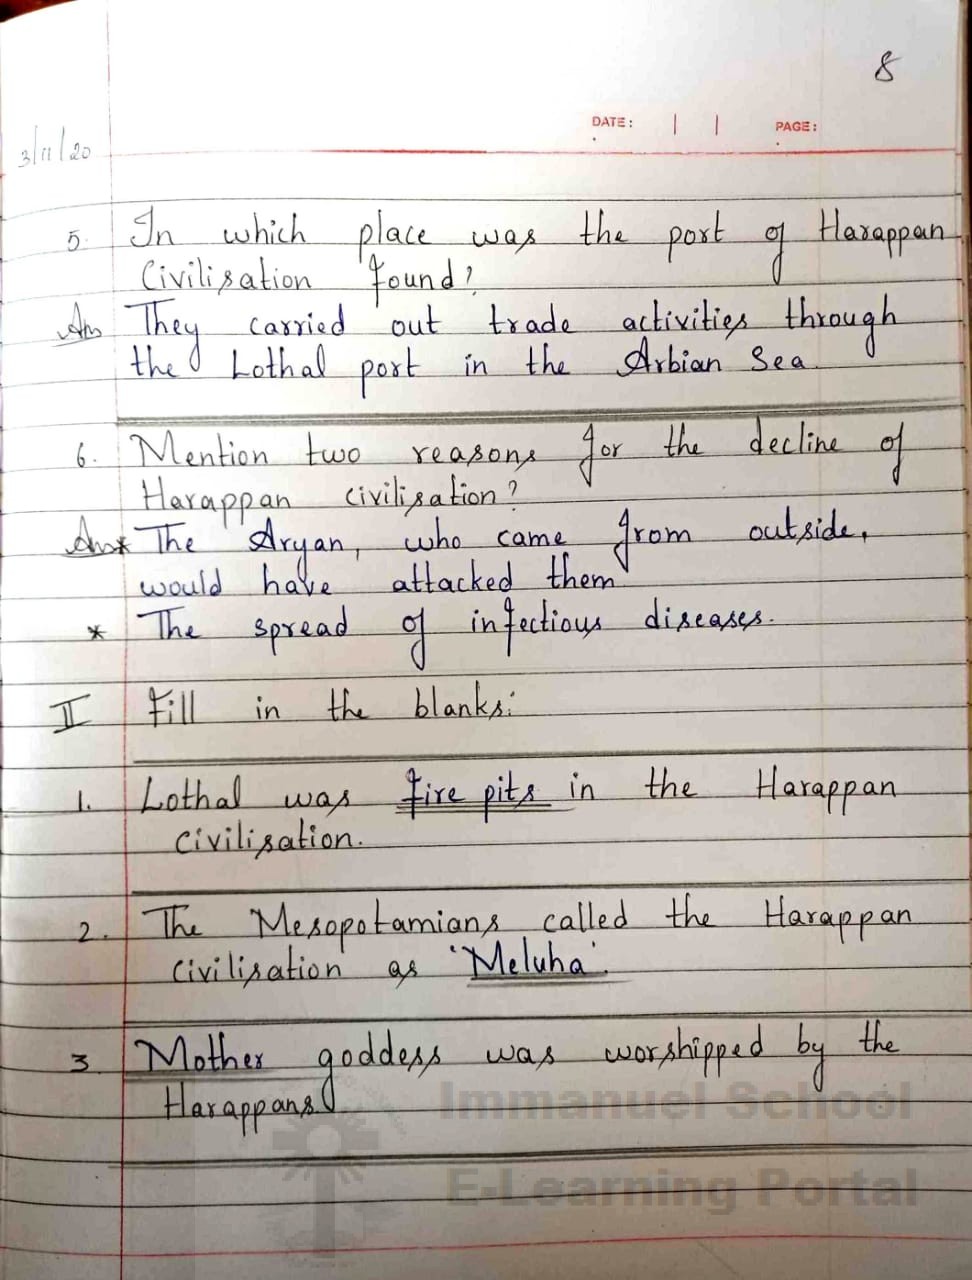 8
DATE: | | PAGE:
3/11/20
5. In which place was the port of Harappan
Civilisation found?
Ans They carried out trade activities through
the Lothal port in the Arbian Sea.
6. Mention two reasons for the decline of
Harappan civilisation?
Ans* The Aryan, who came from outside,
would have attacked them
* The spread of infectious diseases.
II Fill in the blanks:
1. Lothal was fire pits in the Harappan
civilisation.
2. The Mesopotamians called the Harappan
civilisation as 'Meluha'.
3. Mother goddess was worshipped by the
Harappans.
Immanuel School
E-Learning Portal